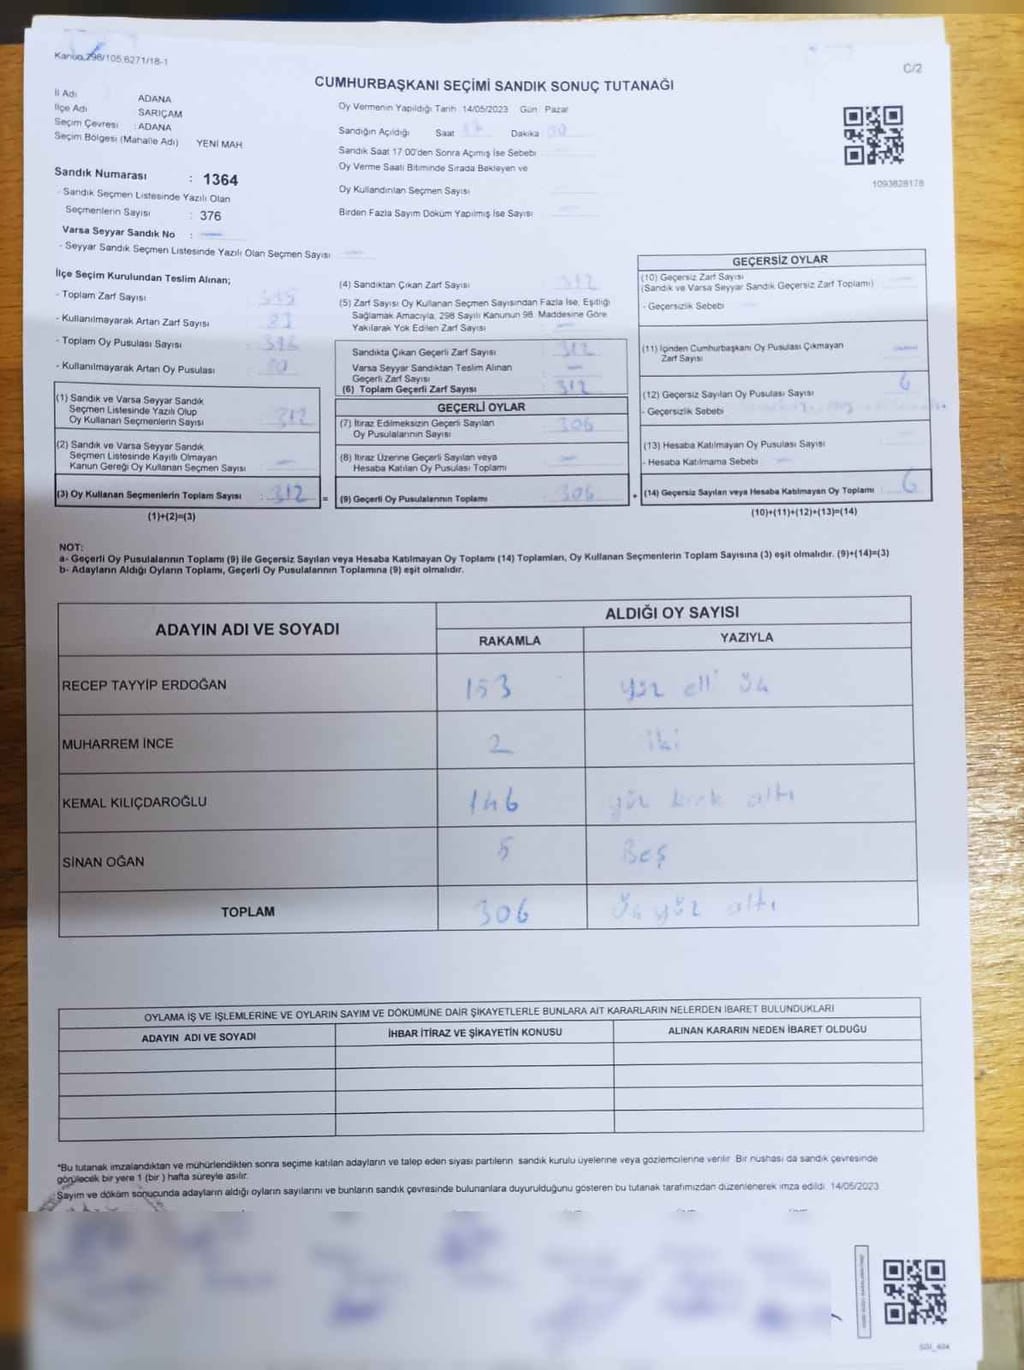 Kanun 298/105,6271/18-1
C/2
CUMHURBAŞKANI SEÇİMİ SANDIK SONUÇ TUTANAĞI
İl Adı ADANA
İlçe Adı SARIÇAM
Seçim Çevresi : ADANA
Seçim Bölgesi (Mahalle Adı) YENİ MAH
Oy Vermenin Yapıldığı Tarih 14/05/2023 Gün Pazar
Sandığın Açıldığı Saat 17 Dakika
Sandık Saat 17 00'den Sonra Açımış İse Sebebi
Oy Verme Saati Bitiminde Sırada Bekleyen ve
Oy Kullandırılan Seçmen Sayısı
Birden Fazla Sayım Döküm Yapılmış İse Sayısı
1093828178
Sandık Numarası : 1364
- Sandık Seçmen Listesinde Yazılı Olan
Seçmenlerin Sayısı : 376
Varsa Seyyar Sandık No :
- Seyyar Sandık Seçmen Listesinde Yazılı Olan Seçmen Sayısı
İlçe Seçim Kurulundan Teslim Alınan;
- Toplam Zarf Sayısı
- Kullanılmayarak Artan Zarf Sayısı
- Toplam Oy Pusulası Sayısı
- Kullanılmayarak Artan Oy Pusulası
(1) Sandık ve Varsa Seyyar Sandık
Seçmen Listesinde Yazılı Olup
Oy Kullanan Seçmenlerin Sayısı 312
(2) Sandık ve Varsa Seyyar Sandık
Seçmen Listesinde Kayıtlı Olmayan
Kanun Gereği Oy Kullanan Seçmen Sayısı
(3) Oy Kullanan Seçmenlerin Toplam Sayısı : 312 =
(1)+(2)=(3)
(4) Sandıktan Çıkan Zarf Sayısı 312
(5) Zarf Sayısı Oy Kullanan Seçmen Sayısından Fazla İse, Eşitliği
Sağlamak Amacıyla, 298 Sayılı Kanunun 98. Maddesine Göre
Yakılarak Yok Edilen Zarf Sayısı
Sandıkta Çıkan Geçerli Zarf Sayısı 312
Varsa Seyyar Sandıktan Teslim Alınan
Geçerli Zarf Sayısı
(6) Toplam Geçerli Zarf Sayısı 312
GEÇERLİ OYLAR
(7) İtiraz Edilmeksizin Geçerli Sayılan
Oy Pusulalarının Sayısı 306
(8) İtiraz Üzerine Geçerli Sayılan veya
Hesaba Katılan Oy Pusulası Toplamı
(9) Geçerli Oy Pusulalarının Toplamı 306 +
GEÇERSİZ OYLAR
(10) Geçersiz Zarf Sayısı
(Sandık ve Varsa Seyyar Sandık Geçersiz Zarf Toplamı)
- Geçersizlik Sebebi
(11) İçinden Cumhurbaşkanı Oy Pusulası Çıkmayan
Zarf Sayısı
(12) Geçersiz Sayılan Oy Pusulası Sayısı 6
- Geçersizlik Sebebi
(13) Hesaba Katılmayan Oy Pusulası Sayısı
- Hesaba Katılmama Sebebi
(14) Geçersiz Sayılan veya Hesaba Katılmayan Oy Toplamı 6
(10)+(11)+(12)+(13)=(14)
NOT:
a- Geçerli Oy Pusulalarının Toplamı (9) ile Geçersiz Sayılan veya Hesaba Katılmayan Oy Toplamı (14) Toplamları, Oy Kullanan Seçmenlerin Toplam Sayısına (3) eşit olmalıdır. (9)+(14)=(3)
b- Adayların Aldığı Oyların Toplamı, Geçerli Oy Pusulalarının Toplamına (9) eşit olmalıdır.
ADAYIN ADI VE SOYADI
ALDIĞI OY SAYISI
RAKAMLA YAZIYLA
RECEP TAYYİP ERDOĞAN 153 yüz elli üç
MUHARREM İNCE 2 iki
KEMAL KILIÇDAROĞLU 146 yüz kırk altı
SİNAN OĞAN 5 Beş
TOPLAM 306 üç yüz altı
OYLAMA İŞ VE İŞLEMLERİNE VE OYLARIN SAYIM VE DÖKÜMÜNE DAİR ŞİKAYETLERLE BUNLARA AİT KARARLARIN NELERDEN İBARET BULUNDUKLARI
ADAYIN ADI VE SOYADI İHBAR İTİRAZ VE ŞİKAYETİN KONUSU ALINAN KARARIN NEDEN İBARET OLDUĞU
*Bu tutanak imzalandıktan ve mühürlendikten sonra seçime katılan adayların ve talep eden siyasi partilerin sandık kurulu üyelerine veya gözlemcilerine verilir Bir nüshası da sandık çevresinde
görülecek bir yere 1 (bir ) hafta süreyle asılır.
Sayım ve döküm sonucunda adayların aldığı oyların sayılarını ve bunların sandık çevresinde bulunanlara duyurulduğunu gösteren bu tutanak tarafımızdan düzenlenerek imza edildi. 14/05/2023